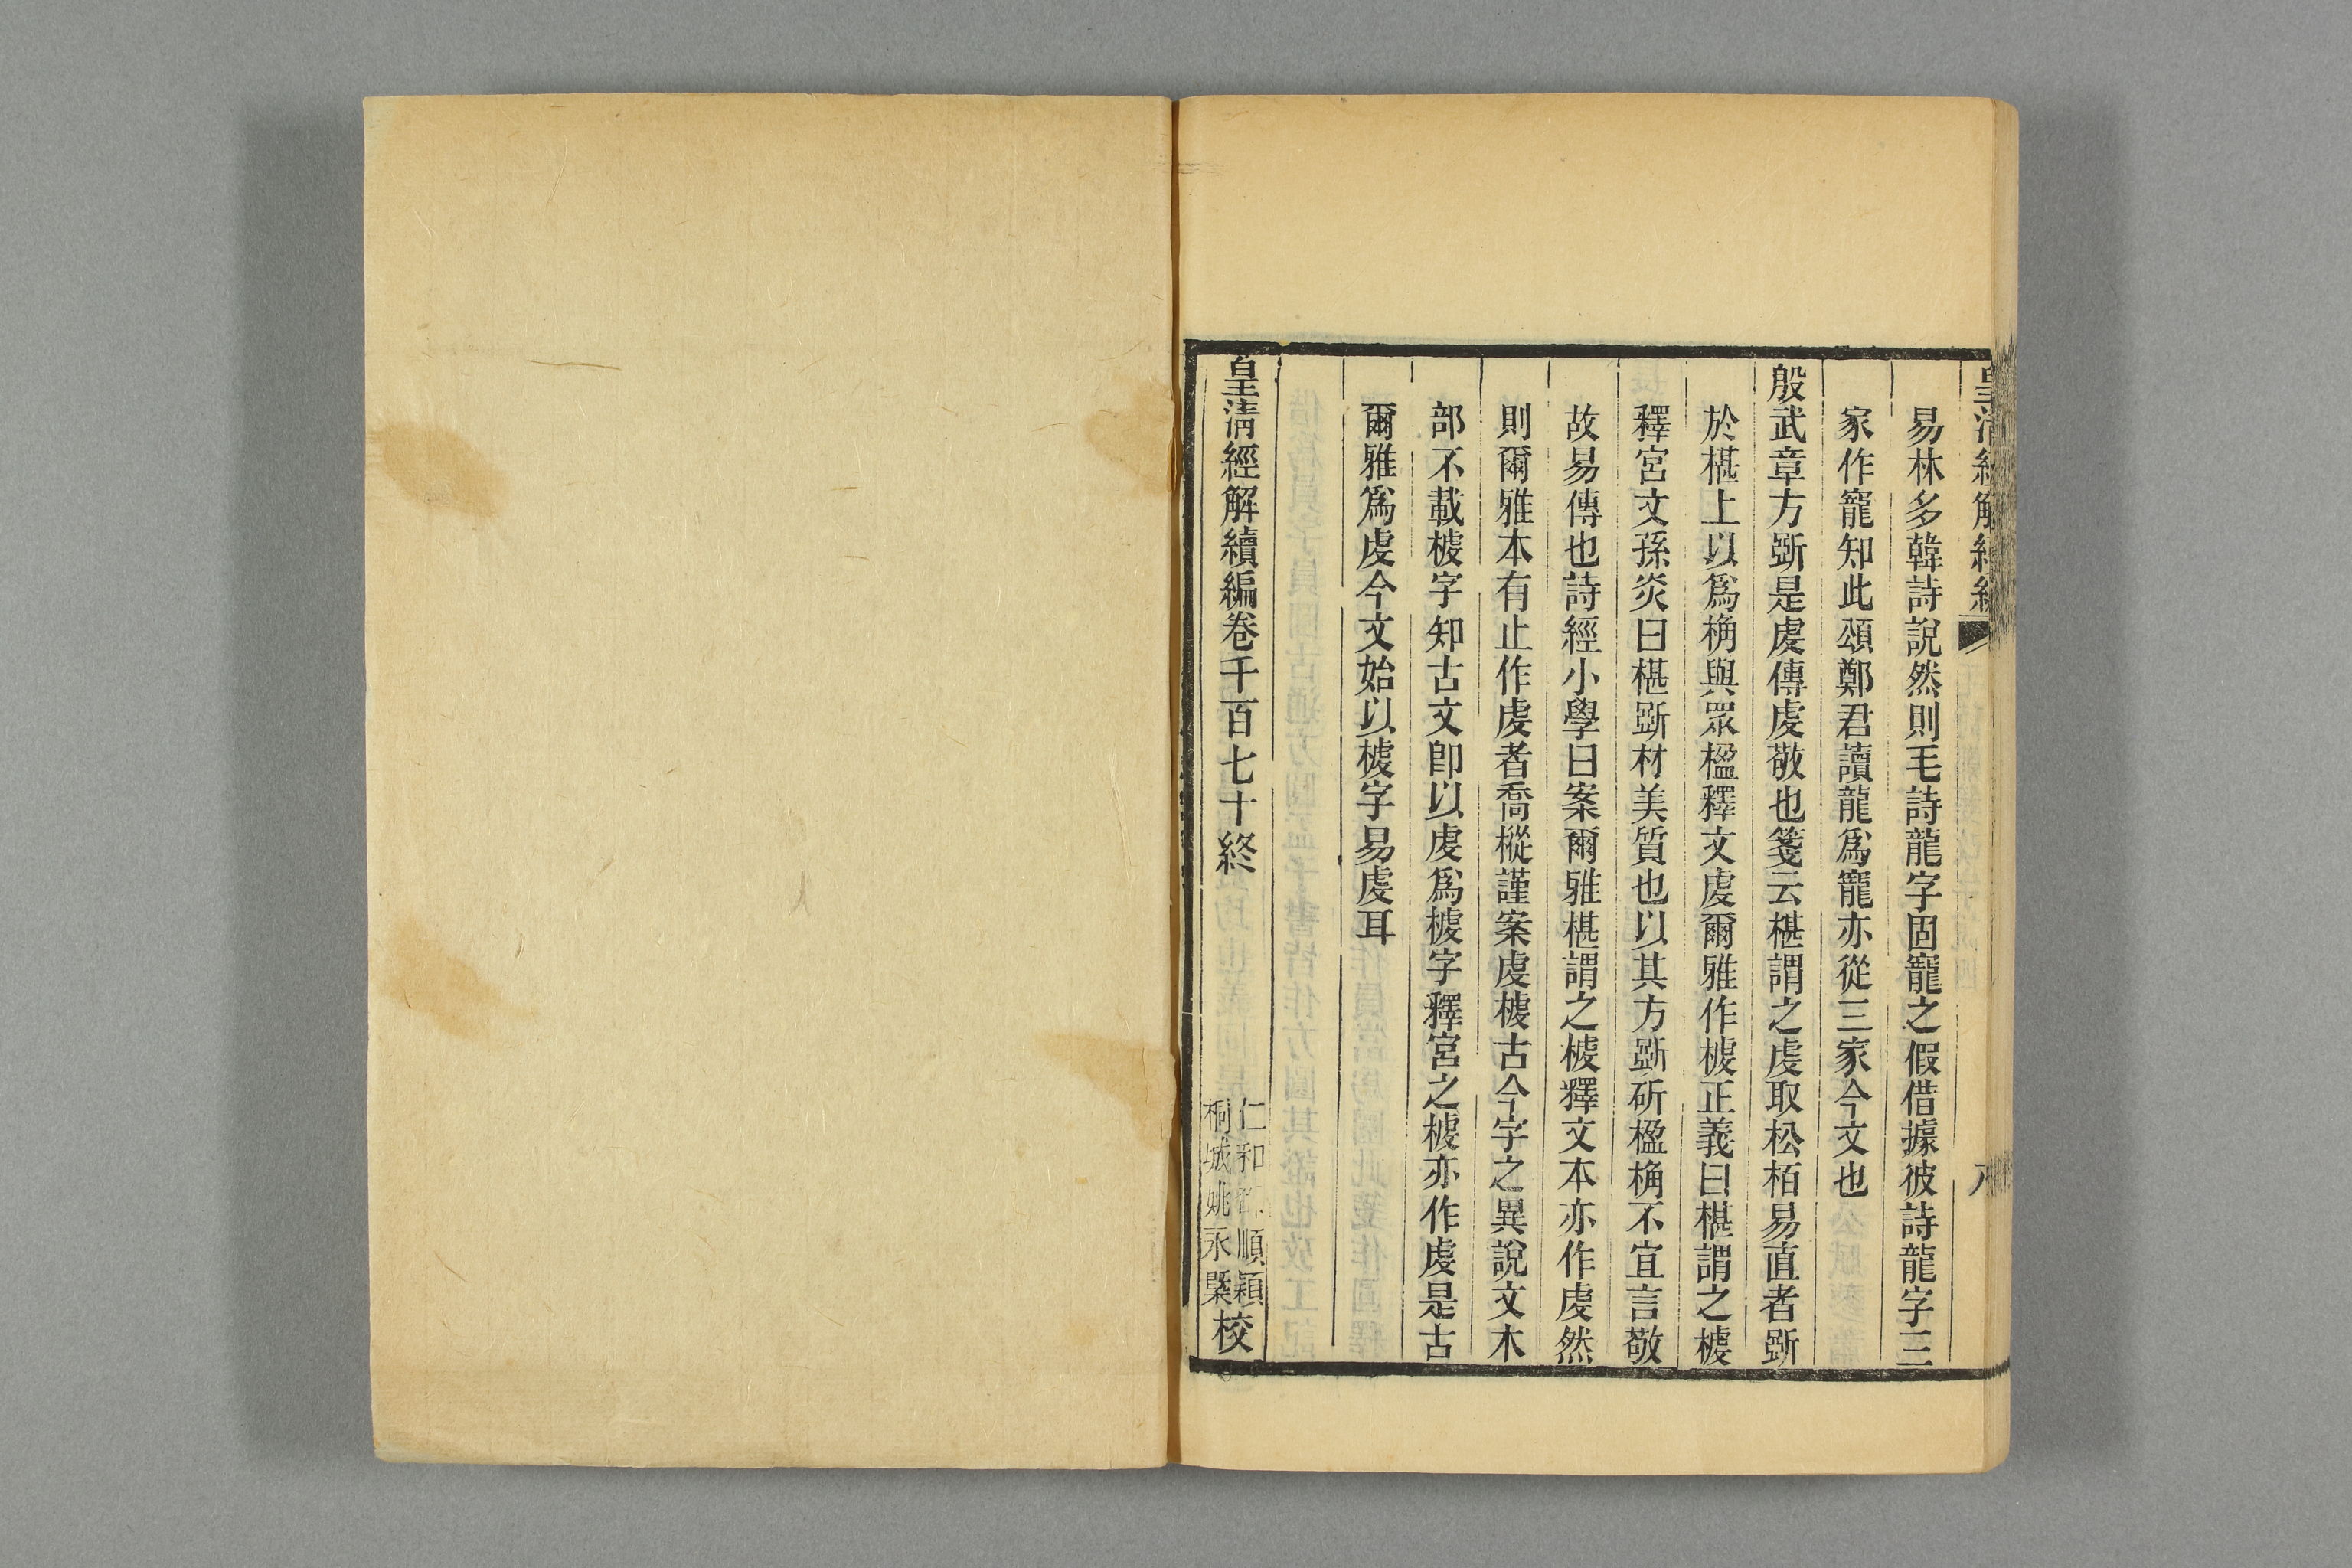 皇清經解續編
八
易林多韓詩說然則毛詩龍字固寵之假借據彼詩龍字三
家作寵知此頌鄭君讀龍爲寵亦從三家今文也
殷武章方斲是虔傳虔敬也箋云椹謂之虔取松栢易直者斲
於椹上以爲桷與眾楹釋文虔爾雅作榩正義曰椹謂之榩
釋宮文孫炎曰椹斲材美質也以其方斲斫楹桷不宜言敬
故易傳也詩經小學曰案爾雅椹謂之榩釋文本亦作虔然
則爾雅本有止作虔者喬樅謹案虔榩古今字之異說文木
部不載榩字知古文卽以虔爲榩字釋宮之榩亦作虔是古
爾雅爲虔今文始以榩字易虔耳
皇清經解續編卷千百七十終
仁和 順穎
桐城姚永槩校